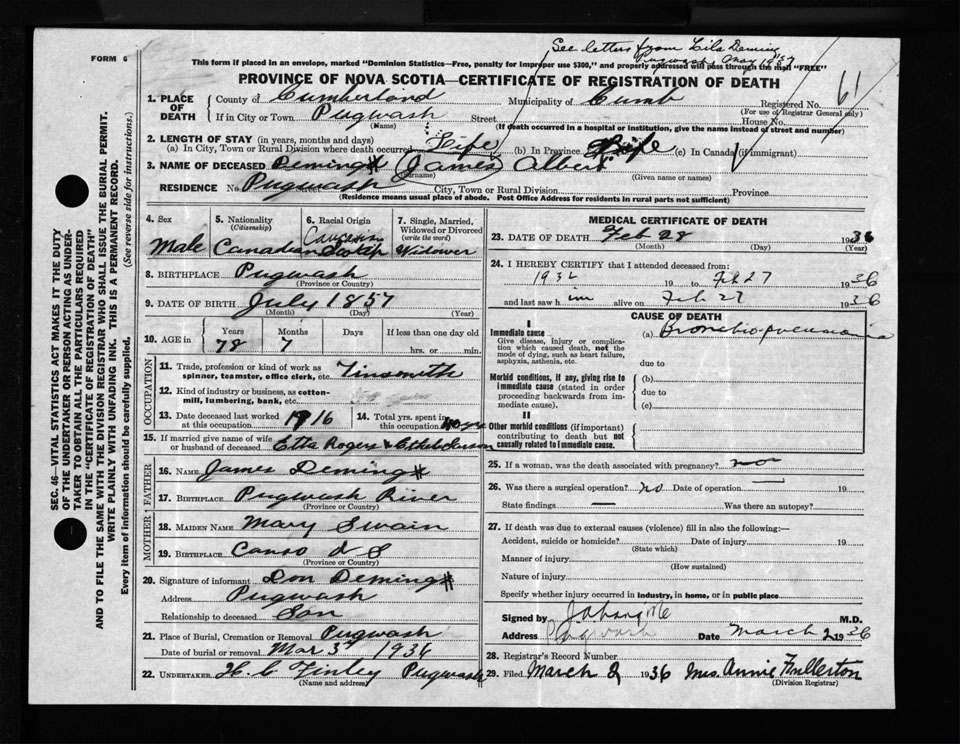 FORM 6
See letters from Lila Deming
Pugwash May 1937
This form if placed in an envelope, marked "Dominion Statistics—Free, penalty for improper use $300," and properly addressed will pass through the mail "FREE"
PROVINCE OF NOVA SCOTIA—CERTIFICATE OF REGISTRATION OF DEATH
61
1. PLACE OF DEATH County of Cumberland Municipality of Cumb Registered No.
(For use of Registrar General only)
If in City or Town Pugwash Street House No.
(Name) (If death occurred in a hospital or institution, give the name instead of street and number)
2. LENGTH OF STAY (in years, months and days)
(a) In City, Town or Rural Division where death occurred Life (b) In Province Life (c) In Canada (if immigrant)
3. NAME OF DECEASED Deming James Albert
(Surname) (Given name or names)
RESIDENCE No. Pugwash City, Town or Rural Division Province
(Residence means usual place of abode. Post Office Address for residents in rural parts not sufficient)
4. Sex Male
5. Nationality (Citizenship) Canadian
6. Racial Origin Caucasian
7. Single, Married, Widowed or Divorced (write the word) Widower
8. BIRTHPLACE Pugwash
(Province or Country)
9. DATE OF BIRTH July 1857
(Month) (Day) (Year)
10. AGE in Years Months Days If less than one day old
78 7 hrs. or min.
OCCUPATION
11. Trade, profession or kind of work as spinner, teamster, office clerk, etc. Tinsmith
12. Kind of industry or business, as cotton-mill, lumbering, bank, etc.
13. Date deceased last worked at this occupation 1916
14. Total yrs. spent in this occupation 40 yrs
15. If married give name of wife or husband of deceased Etta Rogers
FATHER
16. NAME James Deming
17. BIRTHPLACE Pugwash River
(Province or Country)
MOTHER
18. MAIDEN NAME Mary Swain
19. BIRTHPLACE Canso N S
(Province or Country)
20. Signature of informant Don Deming
Address Pugwash
Relationship to deceased Son
21. Place of Burial, Cremation or Removal Pugwash
Date of burial or removal Mar 3 1936
22. UNDERTAKER H. C Finley Pugwash
(Name and address)
MEDICAL CERTIFICATE OF DEATH
23. DATE OF DEATH Feb 28 1936
(Month) (Day) (Year)
24. I HEREBY CERTIFY that I attended deceased from:
1932 19 to Feb 27 1936
and last saw him alive on Feb 27 1936
CAUSE OF DEATH
I
Immediate cause (a) Broncho-pneumonia
Give disease, injury or complication which caused death, not the mode of dying, such as heart failure, asphyxia, asthenia, etc.
due to
Morbid conditions, if any, giving rise to immediate cause (stated in order proceeding backwards from immediate cause).
(b)
due to
(c)
II
Other morbid conditions (if important) contributing to death but not causally related to immediate cause.
25. If a woman, was the death associated with pregnancy? no
26. Was there a surgical operation? no Date of operation — 19
State findings — Was there an autopsy?
27. If death was due to external causes (violence) fill in also the following:—
Accident, suicide or homicide? Date of injury 19
(State which)
Manner of injury
(How sustained)
Nature of injury
Specify whether injury occurred in industry, in home, or in public place
Signed by M.D.
Address Pugwash Date March 2 1936
28. Registrar's Record Number
29. Filed March 2 1936 Mrs. Annie Fullerton
(Division Registrar)
SEC. 46—VITAL STATISTICS ACT MAKES IT THE DUTY
OF THE UNDERTAKER OR PERSON ACTING AS UNDER-
TAKER TO OBTAIN ALL THE PARTICULARS REQUIRED
IN THE "CERTIFICATE OF REGISTRATION OF DEATH"
AND TO FILE THE SAME WITH THE DIVISION REGISTRAR WHO SHALL ISSUE THE BURIAL PERMIT.
WRITE PLAINLY WITH UNFADING INK. THIS IS A PERMANENT RECORD.
Every item of information should be carefully supplied. (See reverse side for instructions.)